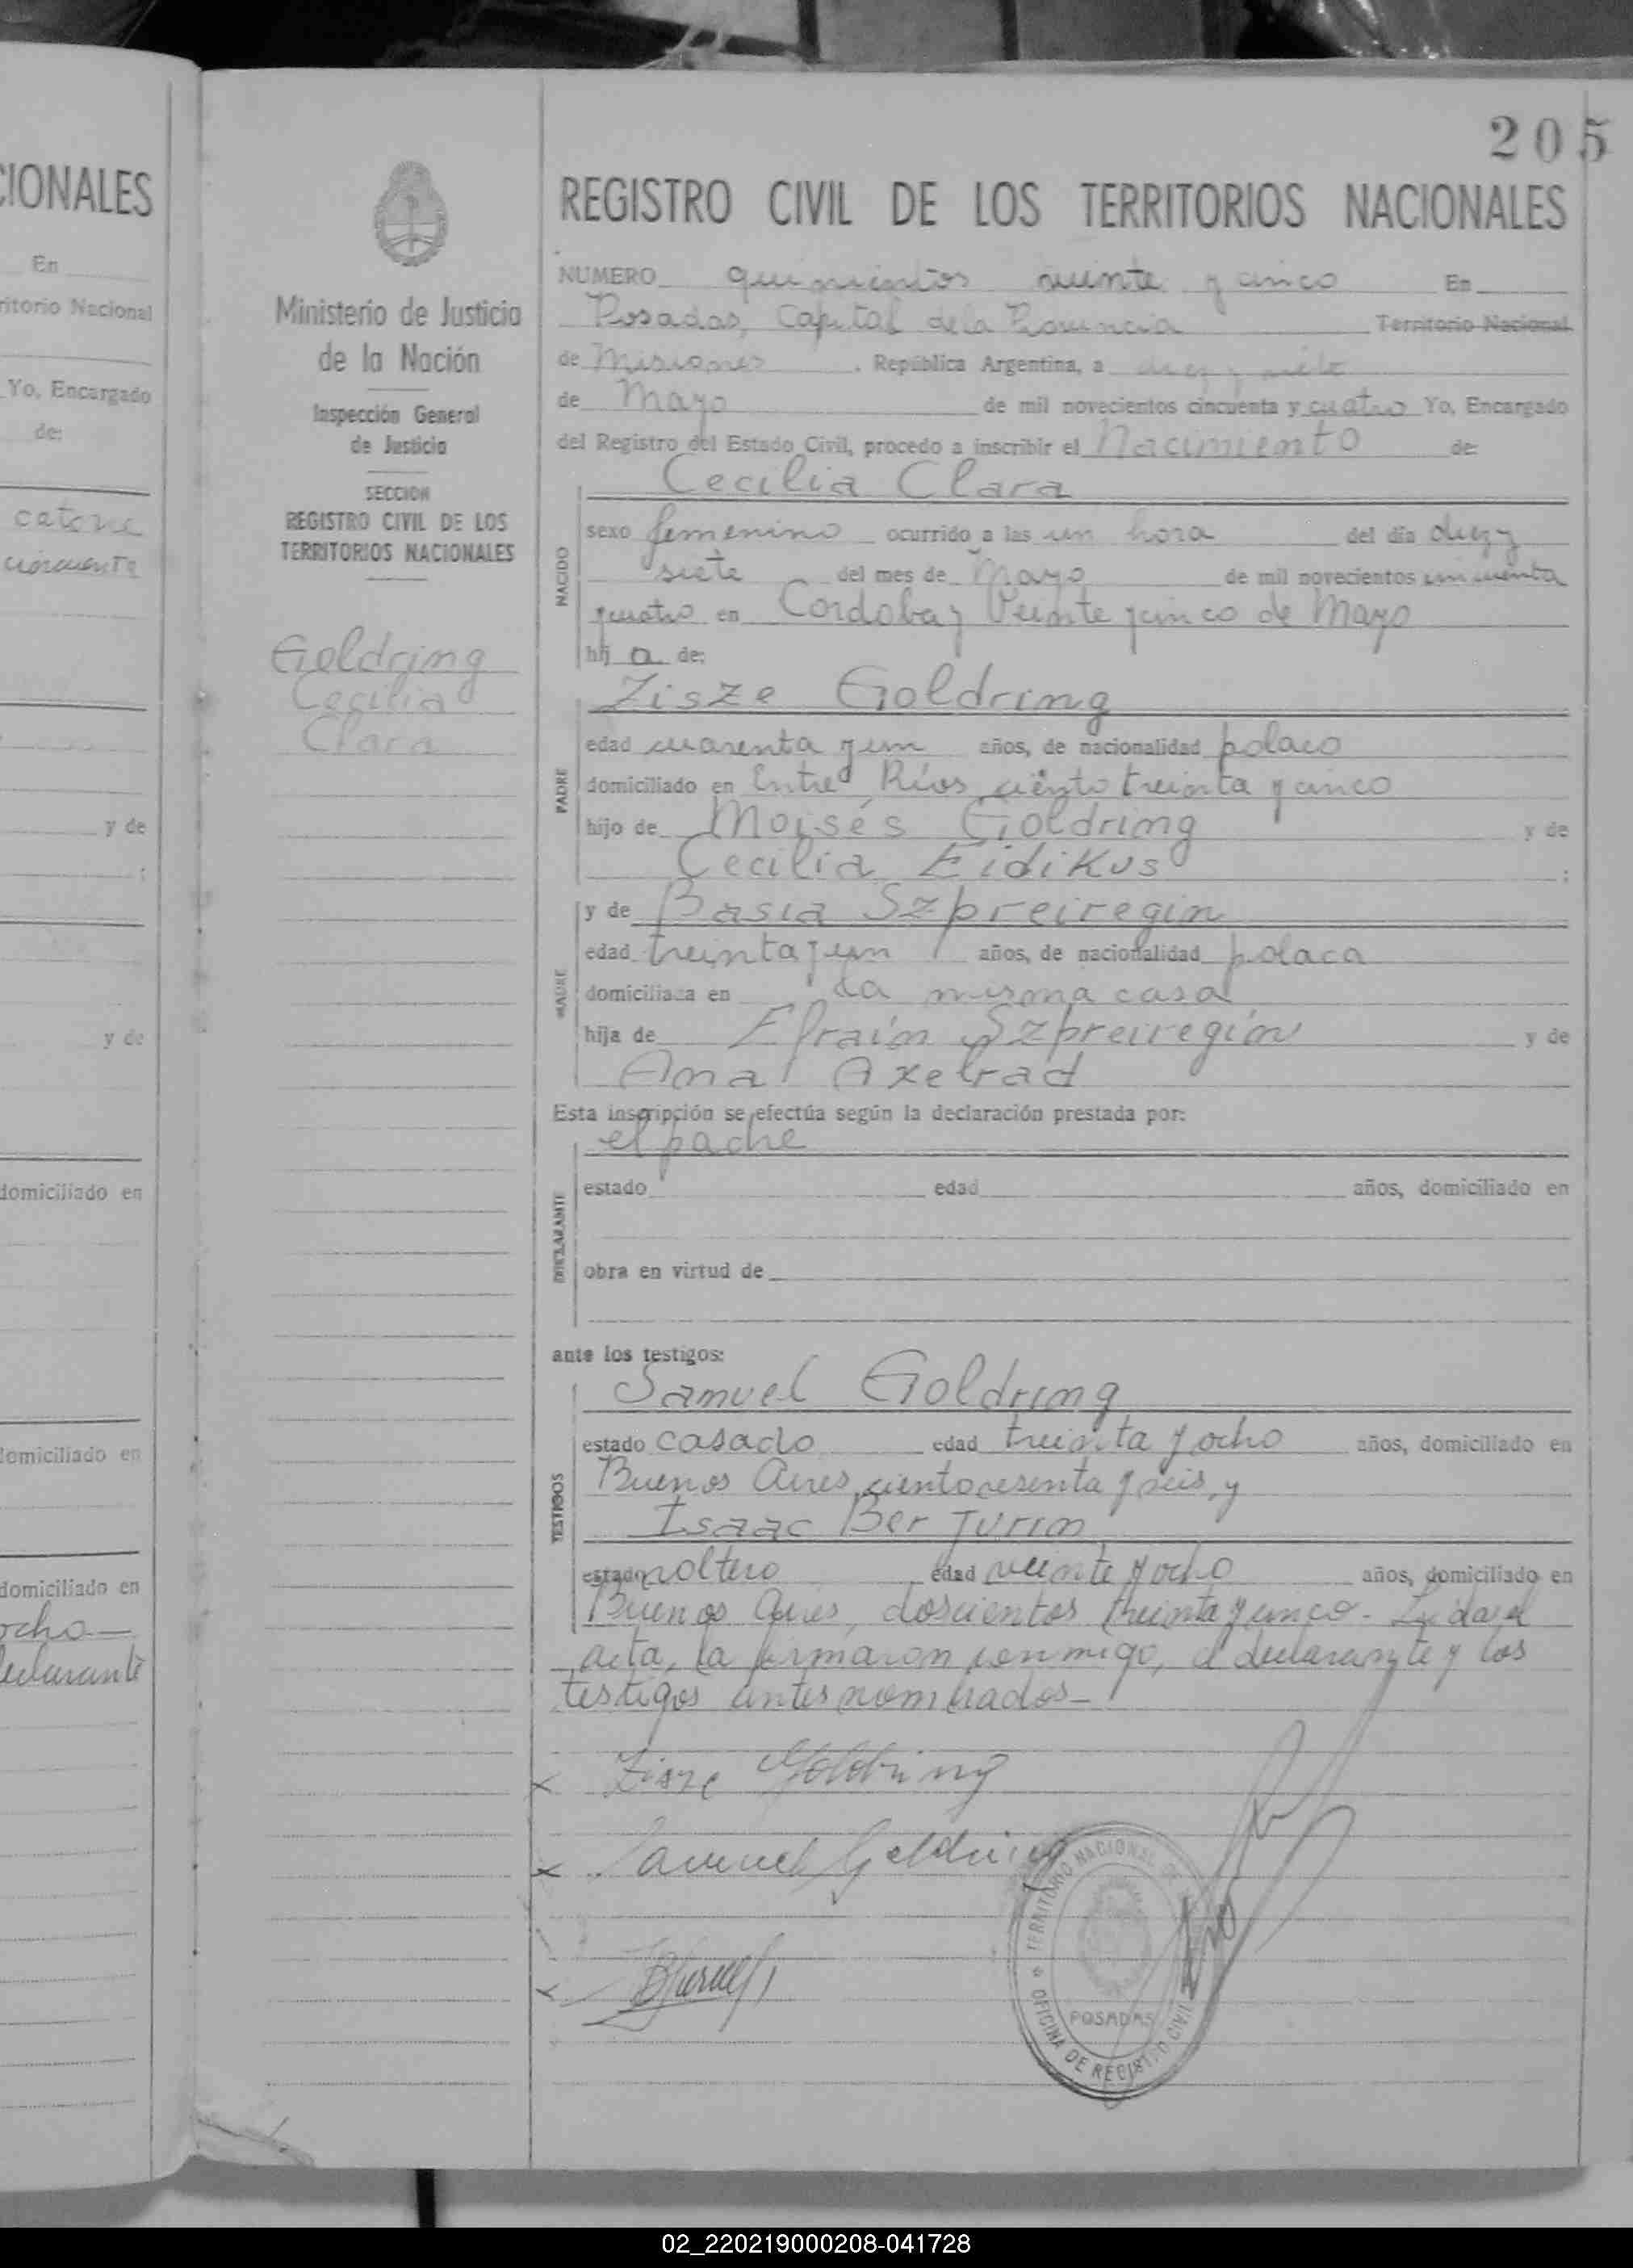 205
CIONALES
En
ritorio Nacional
Yo, Encargado
de:
catorce
cincuenta
y de
:
y de
domiciliado en
domiciliado en
domiciliado en
ocho—
declarante
Ministerio de Justicia
de la Nación
Inspección General
de Justicia
SECCION
REGISTRO CIVIL DE LOS
TERRITORIOS NACIONALES
Goldring
Cecilia
Clara
REGISTRO CIVIL DE LOS TERRITORIOS NACIONALES
NUMERO quinientos veinte y cinco En
Posadas, Capital de la Provincia Territorio Nacional
de Misiones . República Argentina, a diez y siete
de Mayo de mil novecientos cincuenta y cuatro Yo, Encargado
del Registro del Estado Civil, procedo a inscribir el Nacimiento de:
Cecilia Clara
NACIDO
sexo femenino ocurrido a las un hora del día diez y
siete del mes de Mayo de mil novecientos cincuenta
y cuatro en Cordoba y Veinte y cinco de Mayo
hij a de:
Zisze Goldring
PADRE
edad cuarenta y un años, de nacionalidad polaco
domiciliado en Entre Ríos ciento treinta y cinco
hijo de Moisés Goldring y de
Cecilia Eidikus ;
y de Basia Szpreiregin
MADRE
edad treinta y un años, de nacionalidad polaca
domiciliada en la misma casa
hija de Efraín Szpreiregin y de
Ana Axelrad
Esta inscripción se efectúa según la declaración prestada por:
el padre
DECLARANTE
estado edad años, domiciliado en
obra en virtud de
ante los testigos:
Samuel Goldring
TESTIGOS
estado casado edad treinta y ocho años, domiciliado en
Buenos Aires, ciento sesenta y seis, y
Isaac Ber Turin
estado soltero edad veinte y ocho años, domiciliado en
Buenos Aires, doscientos treinta y cinco.- Leida el
acta, la firmaron conmigo, el declarante y los
testigos antes nombrados—
x Zisze Goldring
x Samuel Goldring
x
TERRITORIO NACIONAL DE
POSADAS
OFICINA DE REGISTRO CIVIL
02_220219000208-041728